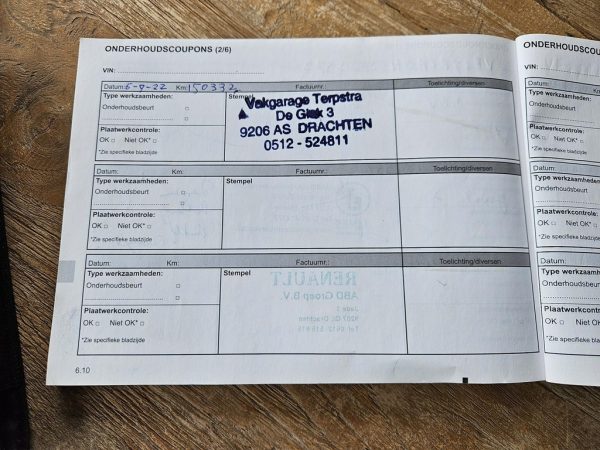 ONDERHOUDSCOUPONS (2/6)
VIN:
Datum: 6-9-22 Km: 150332 Factuurnr.: Toelichting/diversen
Type werkzaamheden: Stempel
Onderhoudsbeurt
Plaatwerkcontrole:
OK Niet OK*
*Zie specifieke bladzijde
Vakgarage Terpstra
De Giek 3
9206 AS DRACHTEN
0512 - 524811
Datum: Km: Factuurnr.: Toelichting/diversen
Type werkzaamheden: Stempel
Onderhoudsbeurt
Plaatwerkcontrole:
OK Niet OK*
*Zie specifieke bladzijde
Datum: Km: Factuurnr.: Toelichting/diversen
Type werkzaamheden: Stempel
Onderhoudsbeurt
Plaatwerkcontrole:
OK Niet OK*
*Zie specifieke bladzijde
RENAULT
ABD Groep B.V.
6.10
ONDERHOUDSCOU
VIN:
Datum:
Type werkzaamheden:
Onderhoudsbeurt
Plaatwerkcontrole:
OK Niet OK*
*Zie specifieke bladzijde
Datum:
Type werkzaamh
Onderhoudsbeurt
Plaatwerkcontrole
OK Niet OK*
*Zie specifieke bladzijde
Datum:
Type werkzaamh
Onderhoudsbeurt
Plaatwerkcontrol
OK Niet OK
*Zie specifieke bladzijde